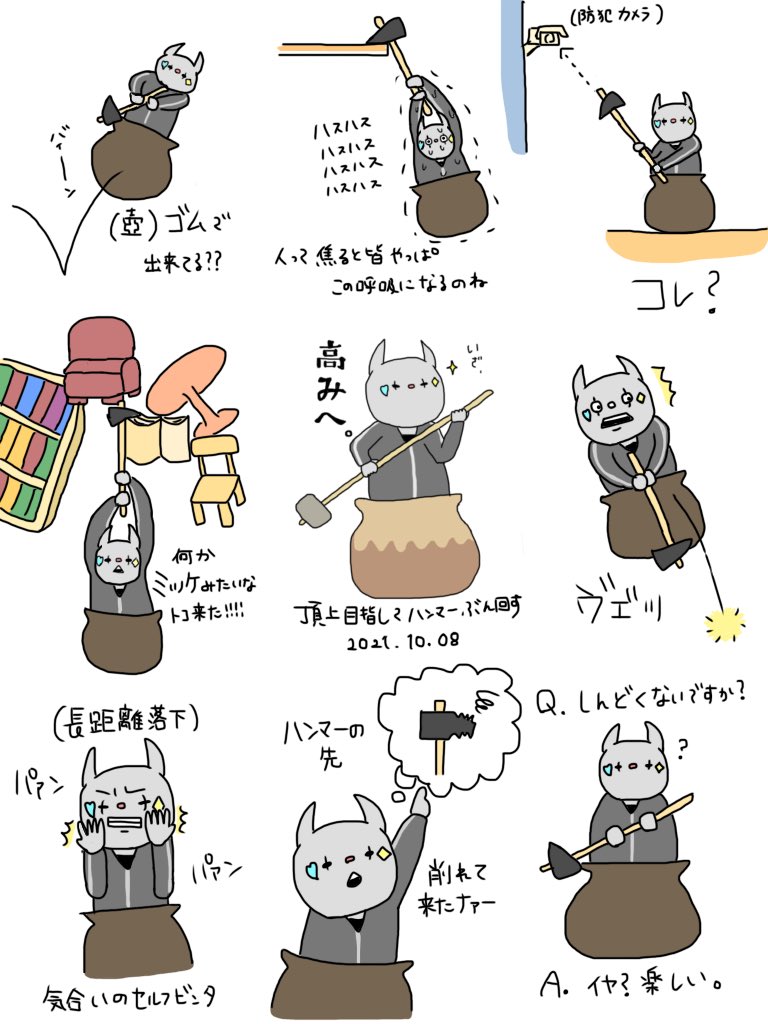 バィーン
(壺)ゴムで
出来てる??
ハスハス
ハスハス
ハスハス
ハスハス
人って焦ると皆やっぱ
この呼吸になるのね
(防犯カメラ)
コレ?
何か
ミッケみたいな
トコ来た!!!!
高みへ。
いざ!
頂上目指してハンマーぶん回す
2021.10.08
ヴェッ
(長距離落下)
パァン
パァン
気合いのセルフビンタ
ハンマーの
先
削れて
来たナァー
Q. しんどくないですか?
?
A. イヤ?楽しい。